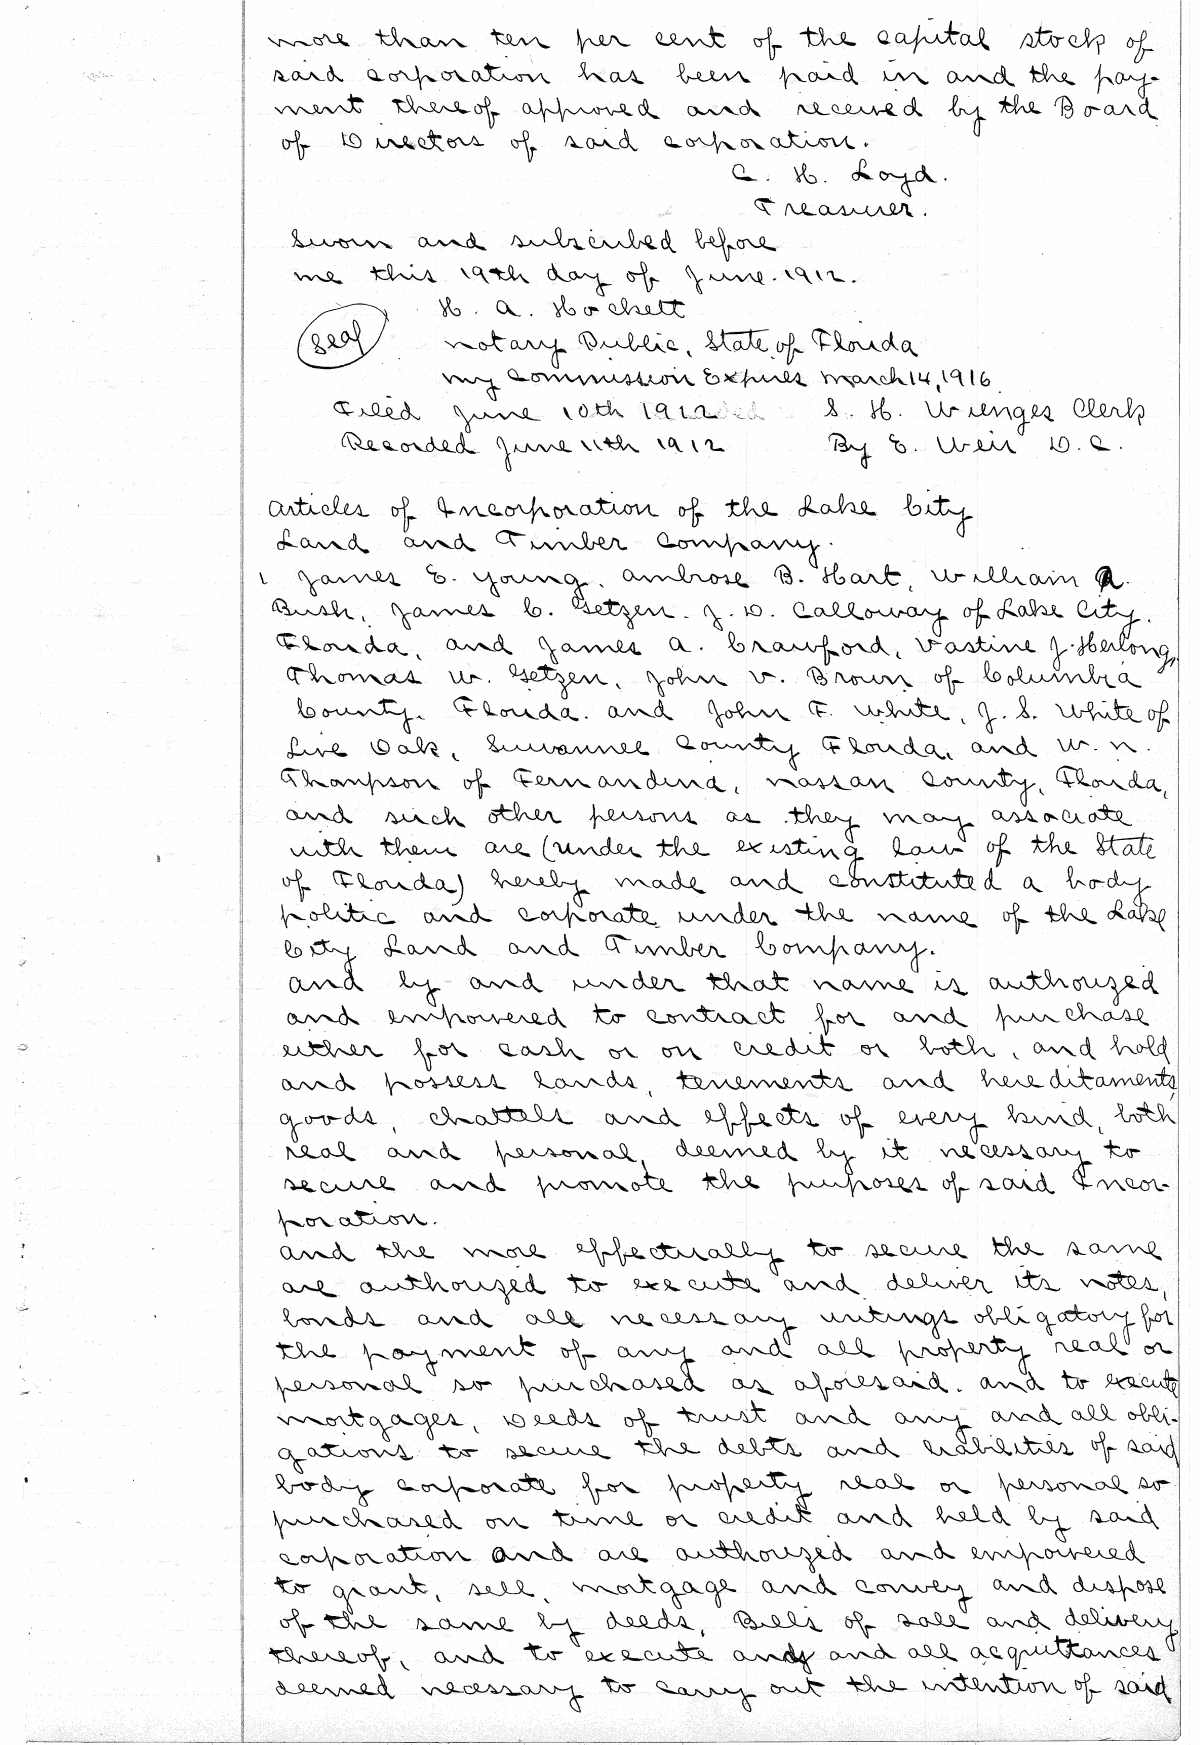 more than ten per cent of the capital stock of
said corporation has been paid in and the pay-
ment thereof approved and received by the Board
of Directors of said corporation.
C. H. Loyd.
Treasurer.
Sworn and subscribed before
me this 19th day of June. 1912.
H. A. Hockett
Seal
Notary Public, State of Florida
my Commission Expires March 14, 1916
Filed June 10th 1912 S. H. Wienges Clerk
Recorded June 11th 1912 By E. Weir D.C.
Articles of Incorporation of the Lake City
Land and Timber Company.
1 James E. Young, Ambrose B. Hart, William R.
Bush, James C. Getzen. J. D. Calloway of Lake City.
Florida, and James A. Crawford, Vastine J. Herlong,
Thomas W. Getzen, John V. Brown of Columbia
County. Florida. and John F. White, J. S. White of
Live Oak, Suwannee County Florida, and W. N.
Thompson of Fernandina, Nassau County, Florida,
and such other persons as they may associate
with them are (under the existing law of the State
of Florida) hereby made and constituted a body
politic and corporate under the name of the Lake
City Land and Timber Company.
and by and under that name is authorized
and empowered to contract for and purchase
either for cash or on credit or both, and hold
and possess lands, tenements and hereditaments,
goods, chattels and effects of every kind, both
real and personal, deemed by it necessary to
secure and promote the purposes of said Incor-
poration.
and the more effectually to secure the same
are authorized to execute and deliver its notes,
bonds and all necessary writings obligatory for
the payment of any and all property real or
personal so purchased as aforesaid. and to execute
mortgages, Deeds of trust and any and all obli-
gations to secure the debts and liabilities of said
body corporate for property real or personal so
purchased on time or credit and held by said
corporation and are authorized and empowered
to grant, sell, mortgage and convey and dispose
of the same by deeds, Bills of sale and delivery
thereof, and to execute any and all acquittances
deemed necessary to carry out the intention of said